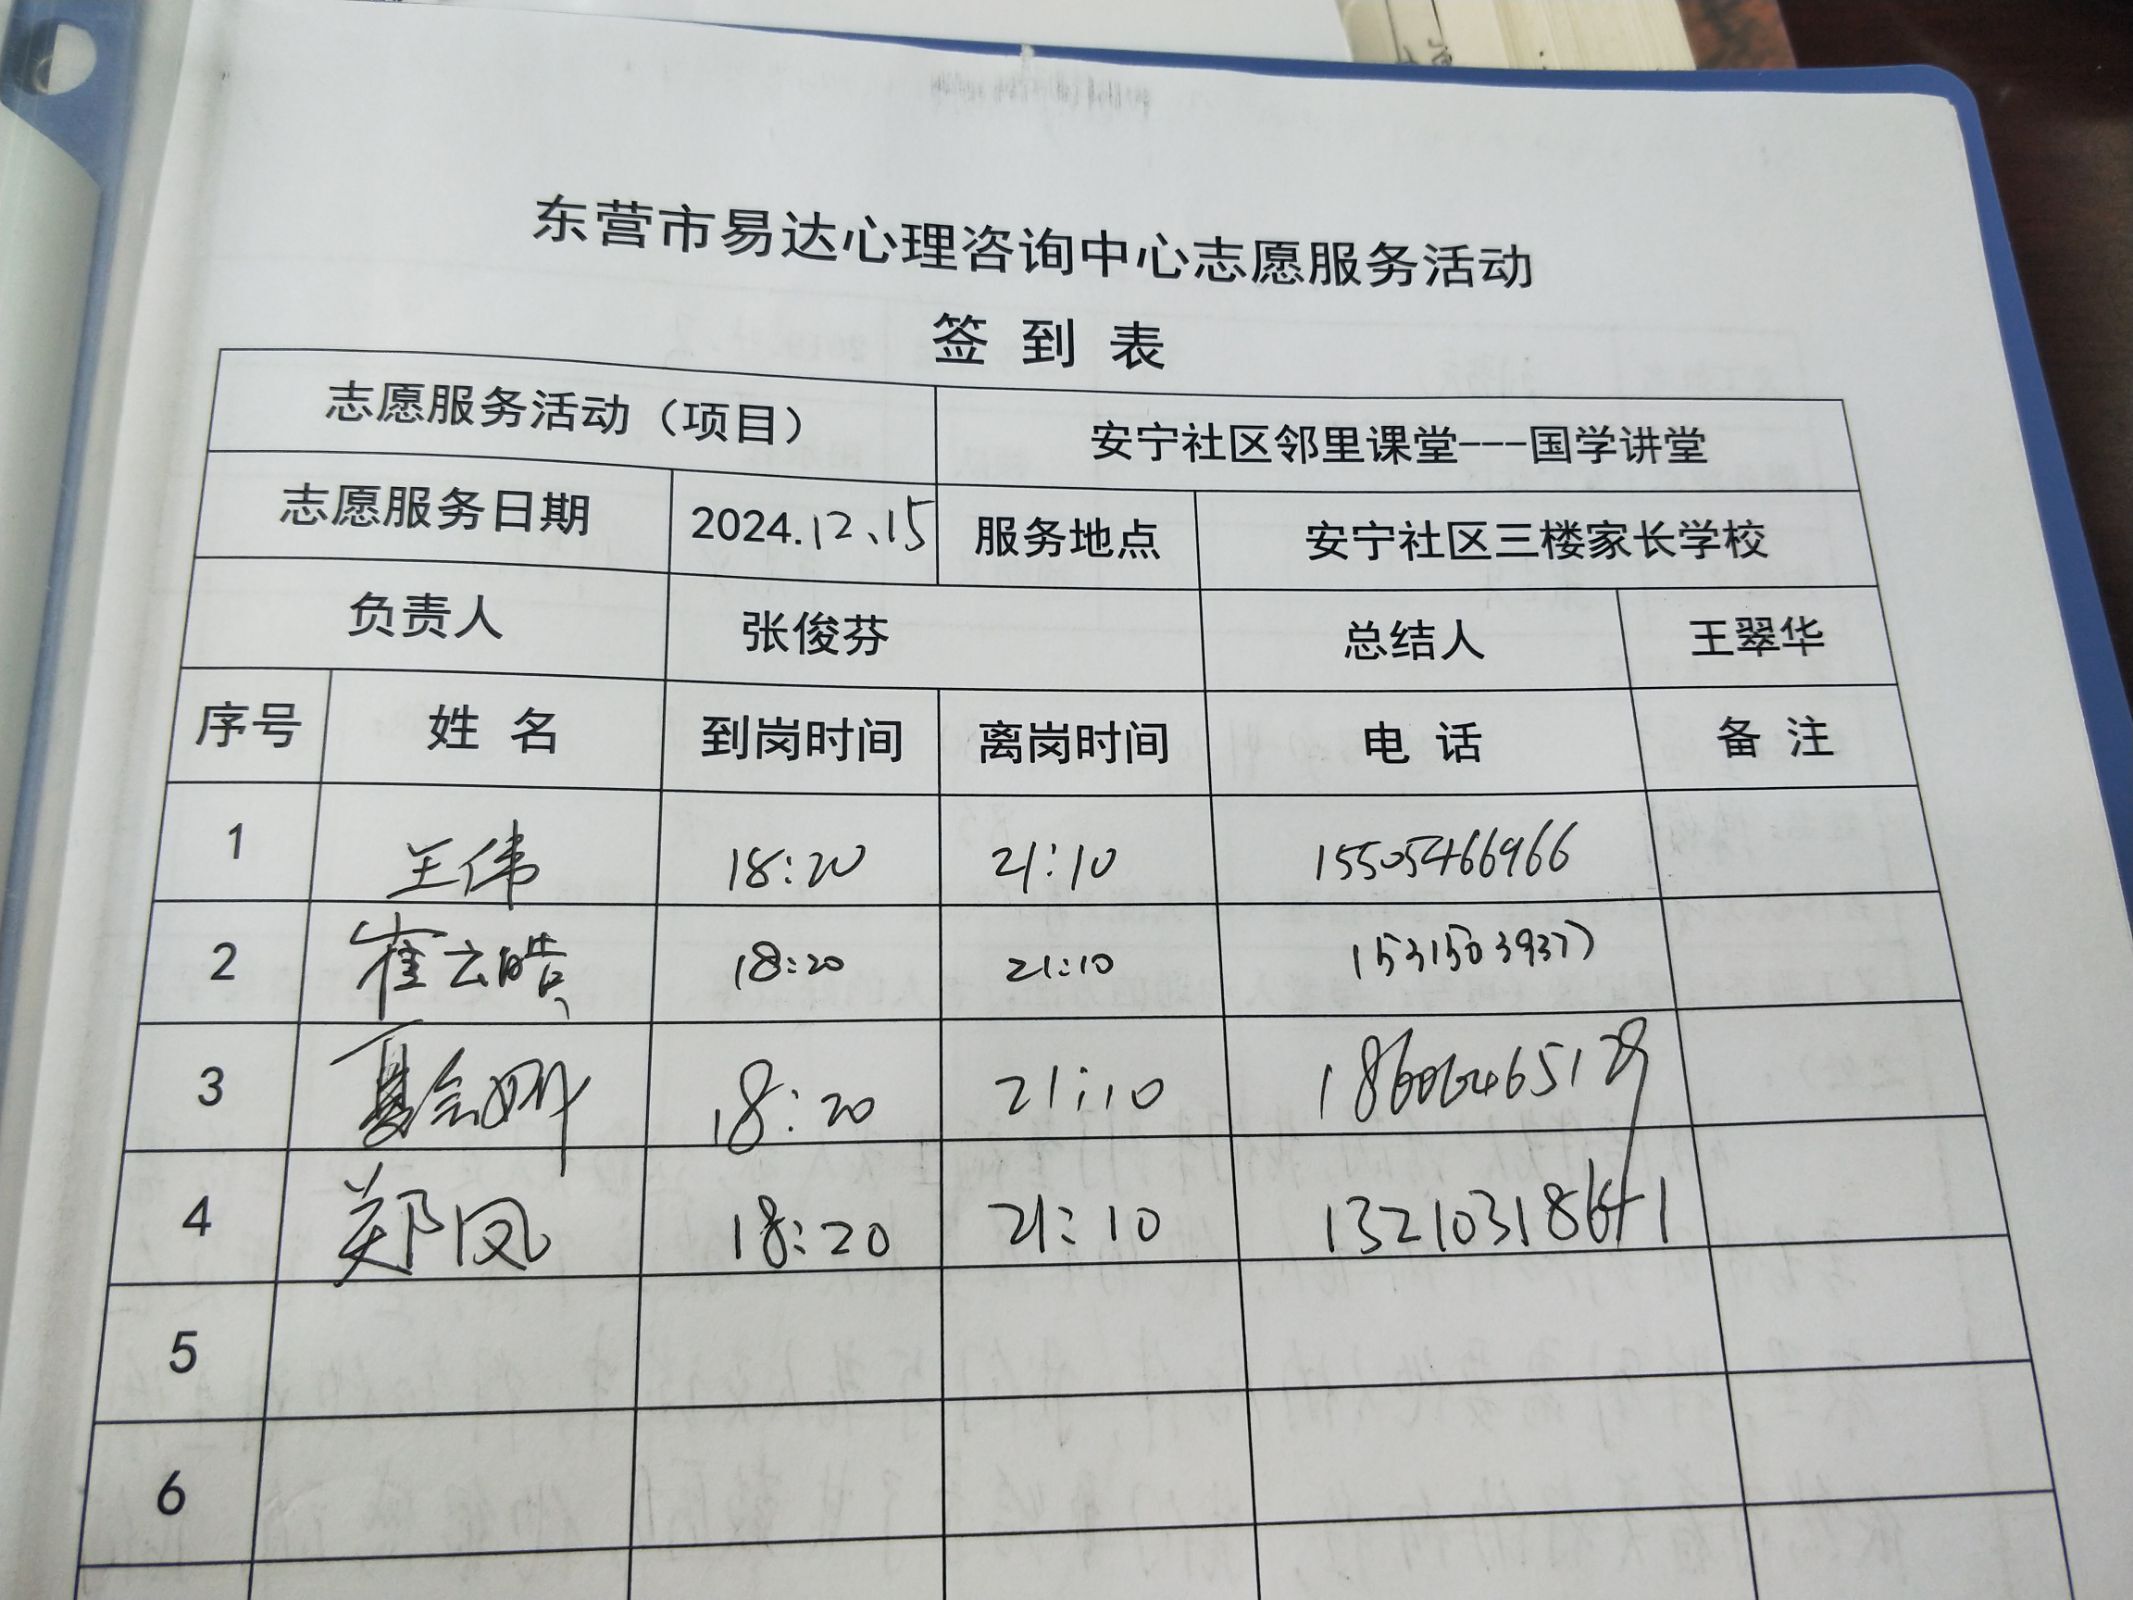 东营市易达心理咨询中心志愿服务活动
签 到 表
志愿服务活动（项目） 安宁社区邻里课堂---国学讲堂
志愿服务日期 2024.12.15 服务地点 安宁社区三楼家长学校
负责人 张俊芬 总结人 王翠华
序号 姓 名 到岗时间 离岗时间 电 话 备 注
1 王伟 18:20 21:10 15505466966
2 崔云皓 18:20 21:10 15315039377
3 18:20 21:10
4 郑凤 18:20 21:10
5
6